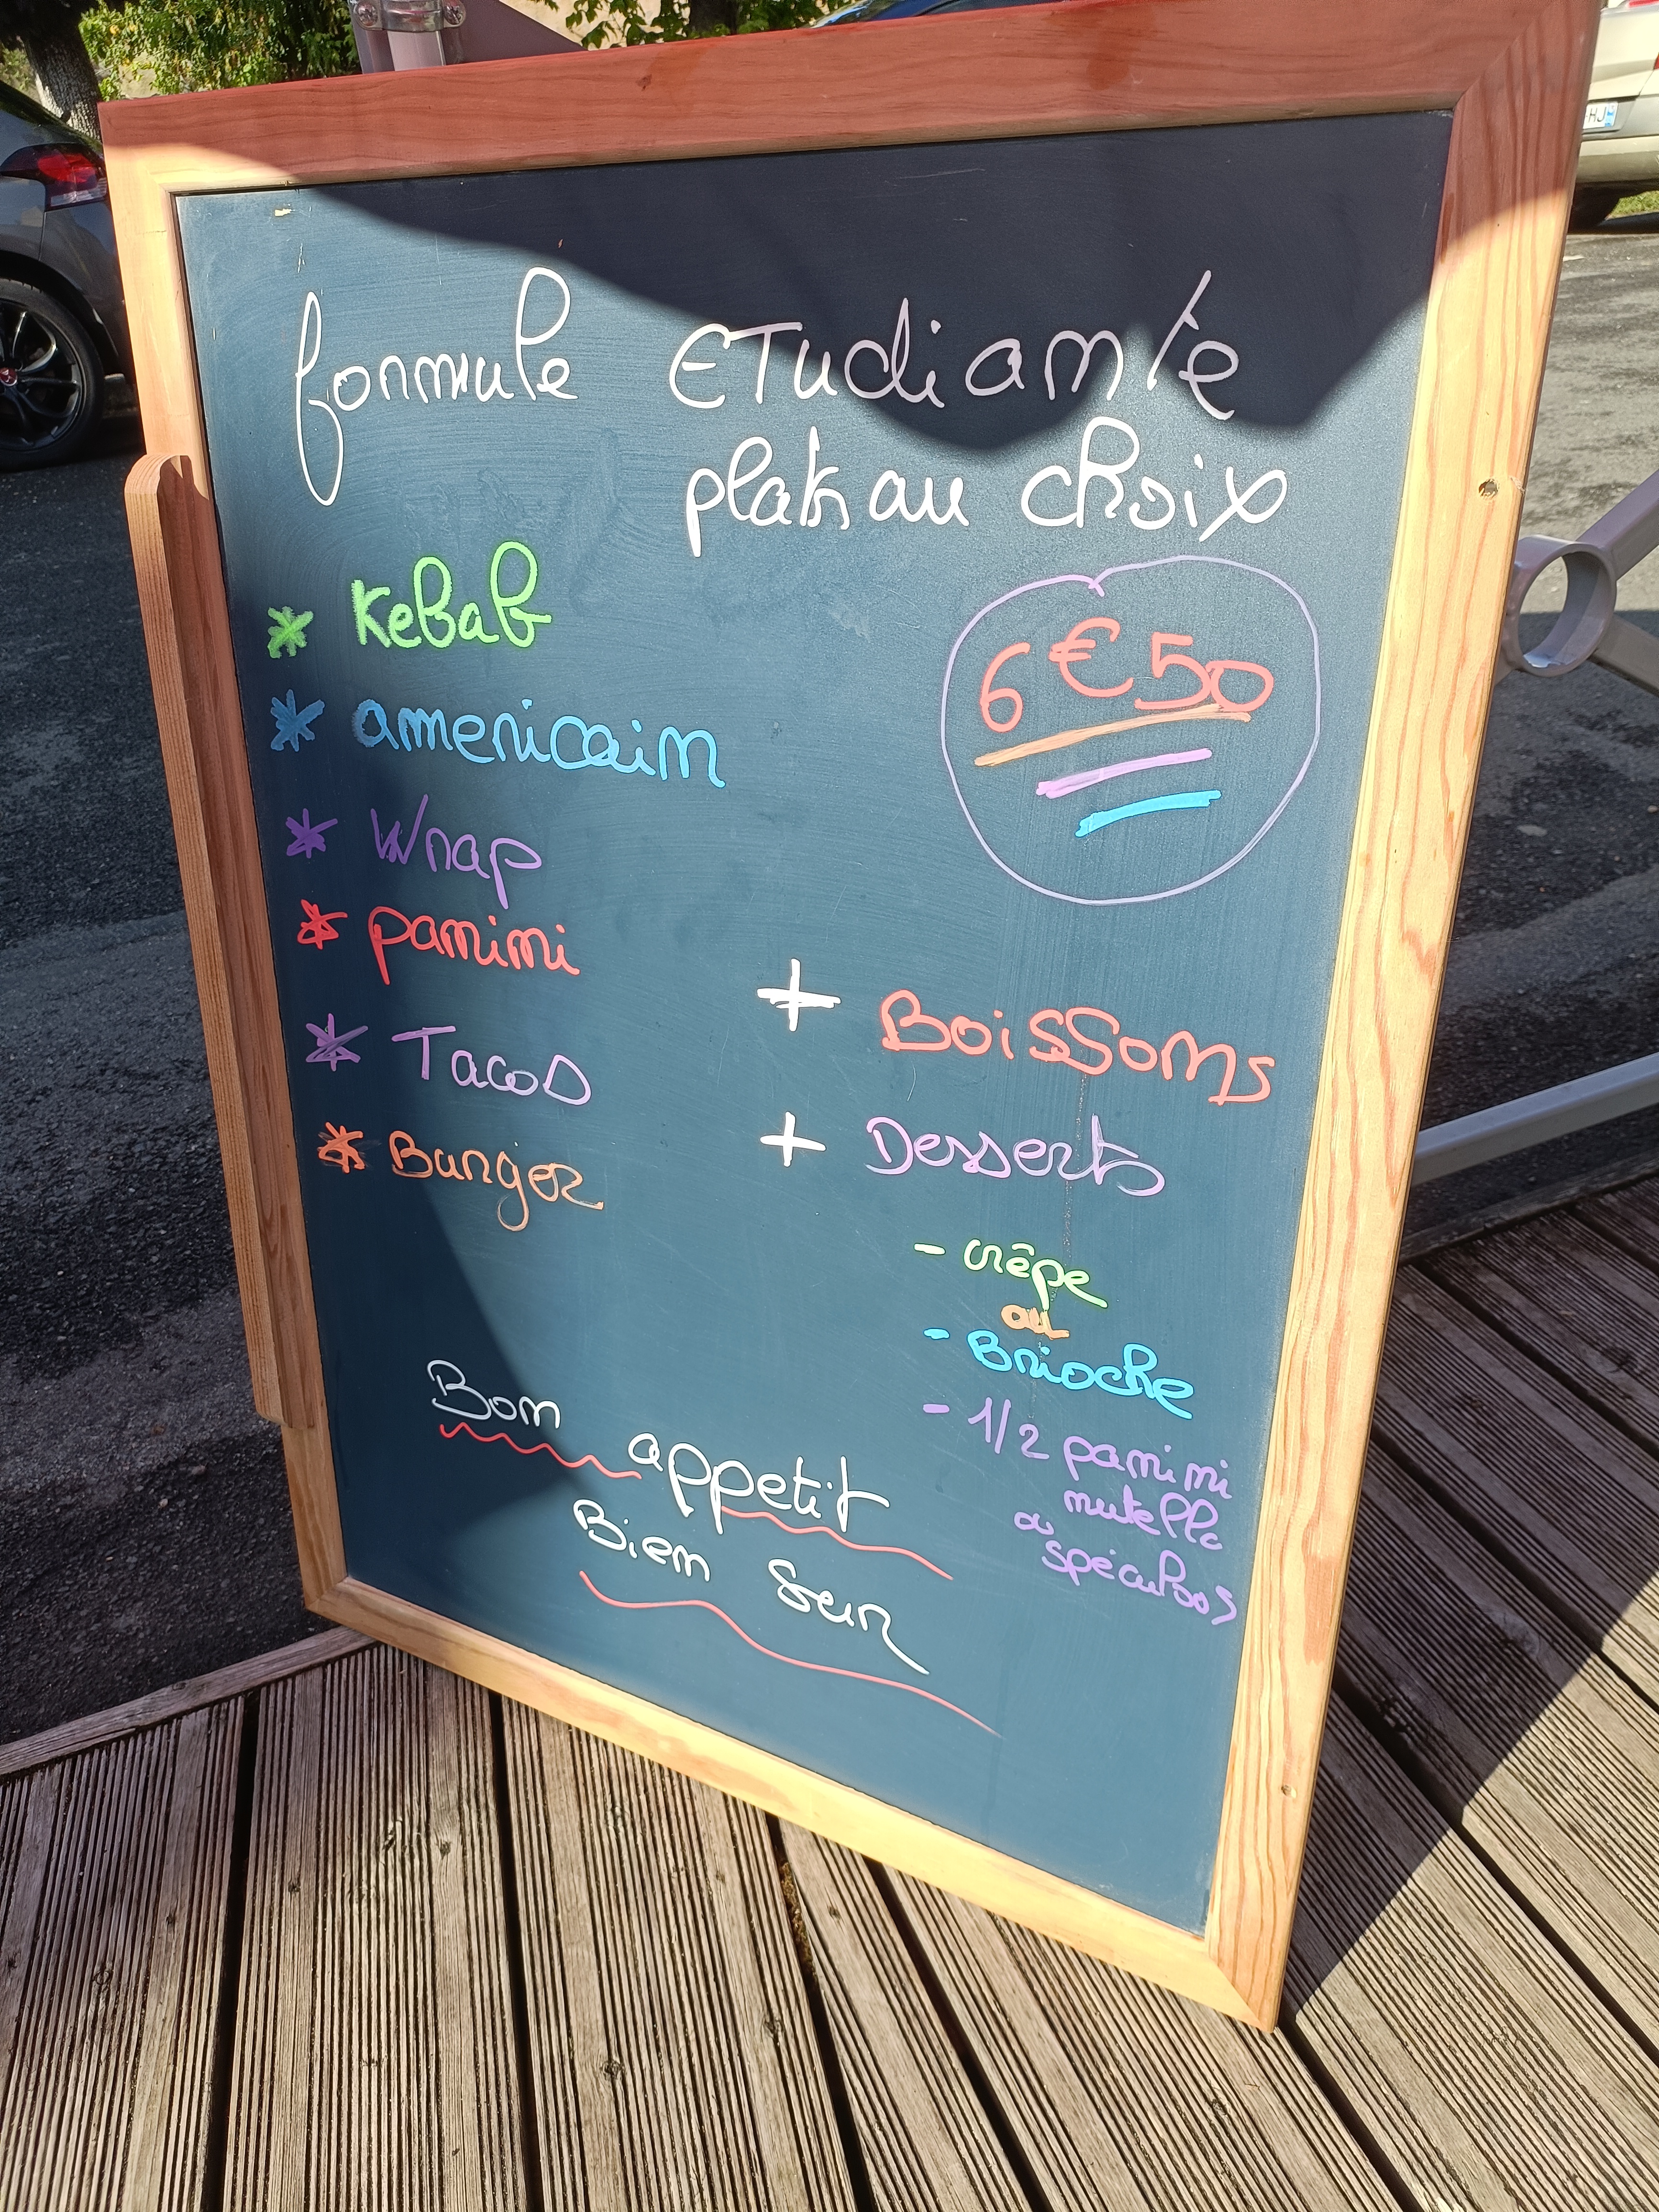 formule ETudiante
plats au choix
* Kebab
* americain
* Wrap
* panini
* Tacos
* Burger
6€50
+ Boissons
+ Desserts
- crêpe
ou
- Brioche
- 1/2 panini
nutella
ou
spéculoos
Bon appetit
Bien sur